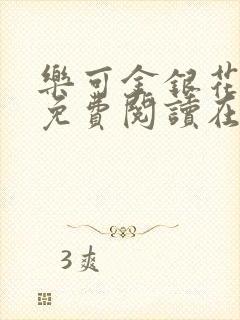 樂可金銀花
免費閱讀在
3爽